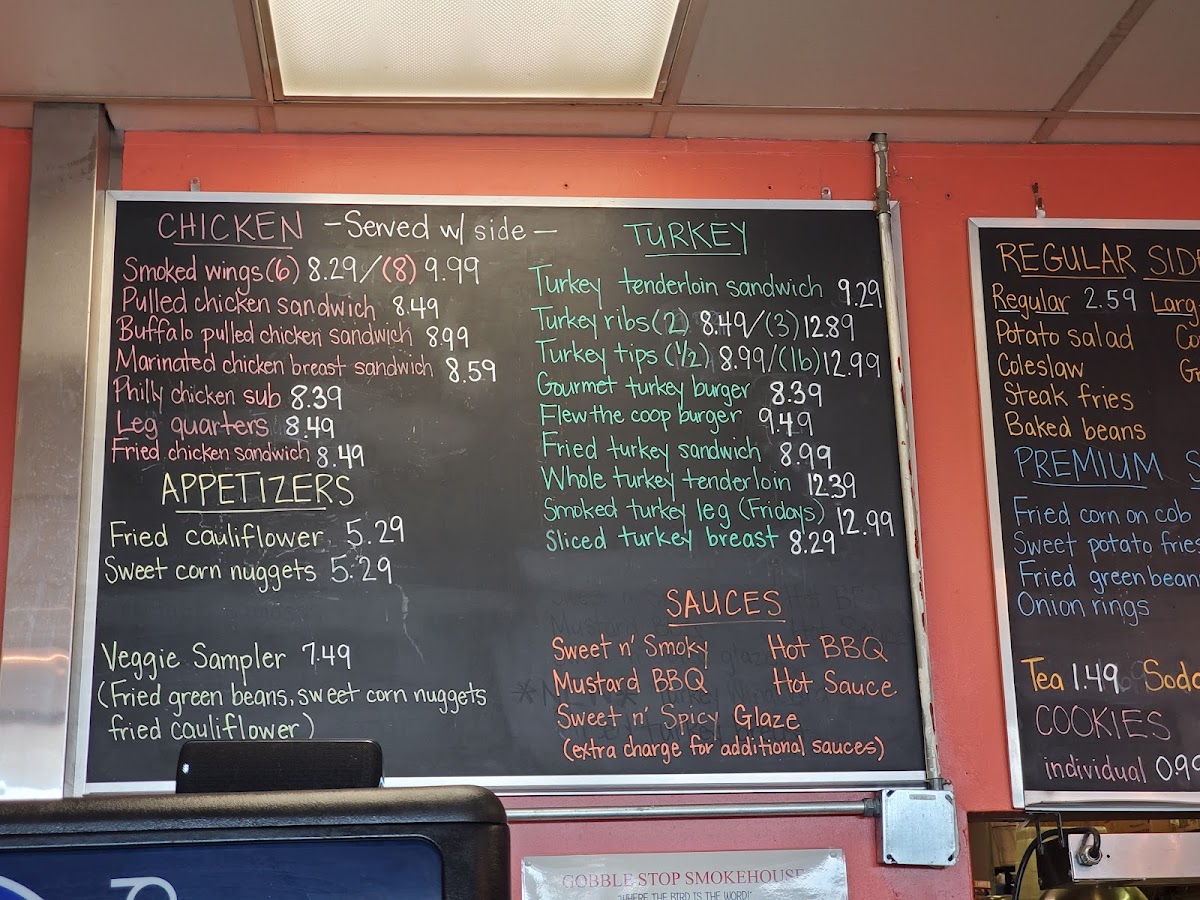 CHICKEN -Served w/ side-
Smoked wings (6) 8.29/(8) 9.99
Pulled chicken sandwich 8.49
Buffalo pulled chicken sandwich 8.99
Marinated chicken breast sandwich 8.59
Philly chicken sub 8.39
Leg quarters 8.49
Fried chicken sandwich 8.49
APPETIZERS
Fried cauliflower 5.29
Sweet corn nuggets 5.29
Veggie Sampler 7.49
(Fried green beans, sweet corn nuggets
fried cauliflower)
TURKEY
Turkey tenderloin sandwich 9.29
Turkey ribs (2) 8.49/(3) 12.89
Turkey tips (1/2) 8.99/(1b) 12.99
Gourmet turkey burger 8.39
Flew the coop burger 9.49
Fried turkey sandwich 8.99
Whole turkey tenderloin 12.39
Smoked turkey leg (Fridays) 12.99
Sliced turkey breast 8.29
SAUCES
Sweet n' Smoky Hot BBQ
Mustard BBQ Hot Sauce
Sweet n' Spicy Glaze
(extra charge for additional sauces)
REGULAR SIDE
Regular 2.59 Larg
Potato salad Co
Coleslaw G
Steak fries
Baked beans
PREMIUM S
Fried corn on cob
Sweet potato fries
Fried green beans
Onion rings
Tea 1.49 Soda
COOKIES
individual 0.99
GOBBLE STOP SMOKEHOUSE
"WHERE THE BIRD IS THE WORD!"